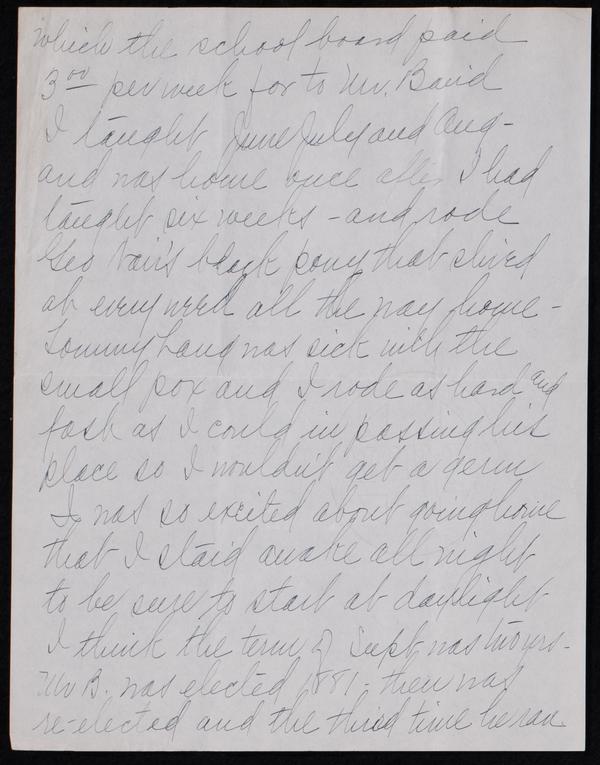 which the school board paid
3 00 per week for to Mr. Baird
I taught June July and Aug -
and was home once after I had
taught six weeks - and rode
Geo Vair's black pony that shied
at every weed all the way home -
Tommy Lang was sick with the
small pox and I rode as hard and
fast as I could in passing his
place so I wouldn't get a germ
I was so excited about going home
that I staid awake all night
to be sure to start at daylight
I think the term of Supt was two yrs -
Mr B. was elected 1881 - then was
re-elected and the third time he ran